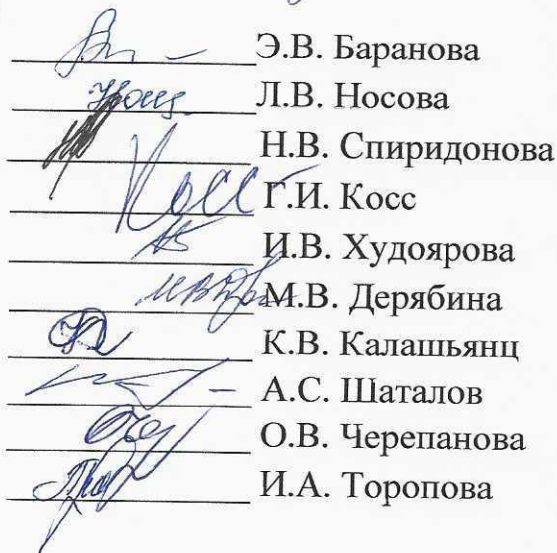 Э.В. Баранова
Л.В. Носова
Н.В. Спиридонова
Косс Г.И. Косс
И.В. Худоярова
М.В. Дерябина
К.В. Калашьянц
А.С. Шаталов
О.В. Черепанова
И.А. Торопова